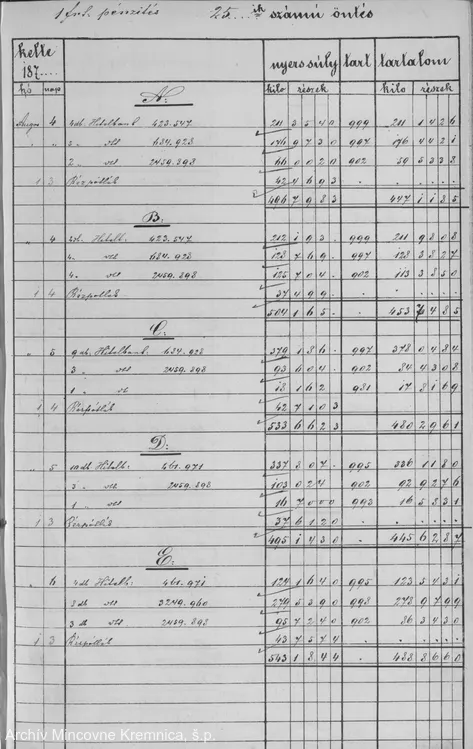 1 frt. pénzítés 25.ik számú öntés
kelte nyerssúly tart tartalom
187
hó nap kilo részek kilo részek
A:
4 Hitelbank 423.547 211 3540 999 211 1426
2 634.923 176 9730 997 176 4421
2 2459.898 66 0020 902 59 5338
1 3 Rézpótlék 42 4693
496 7983 447 1185
B:
4 Hitelb. 423.547 212 193 999 211 9808
4 634.923 128 769 997 128 3827
4 2459.898 125 704 902 113 3850
1 4 Rézpótlék 37 499
504 165 453 7485
C:
5 Hitelbank 634.923 379 186 997 378 0484
3 2459.898 93 604 902 84 4308
1 18 162 981 17 8169
1 4 Rézpótlék 42 7103
533 6623 480 2961
D:
5 Hitelb. 461.971 337 807 995 336 1180
3 2459.898 103 024 902 92 9276
1 16 7000 993 16 5831
1 3 Rézpótlék 37 6120
495 1430 445 6287
E:
6 4 db Hitelb. 461.971 124 1640 995 123 5431
3 db 3249.960 279 5390 998 278 9799
3 db 2459.898 95 7240 902 86 3430
1 3 Rézpótlék 43 7574
543 1844 488 8660
Archív Mincovne Kremnica, š.p.